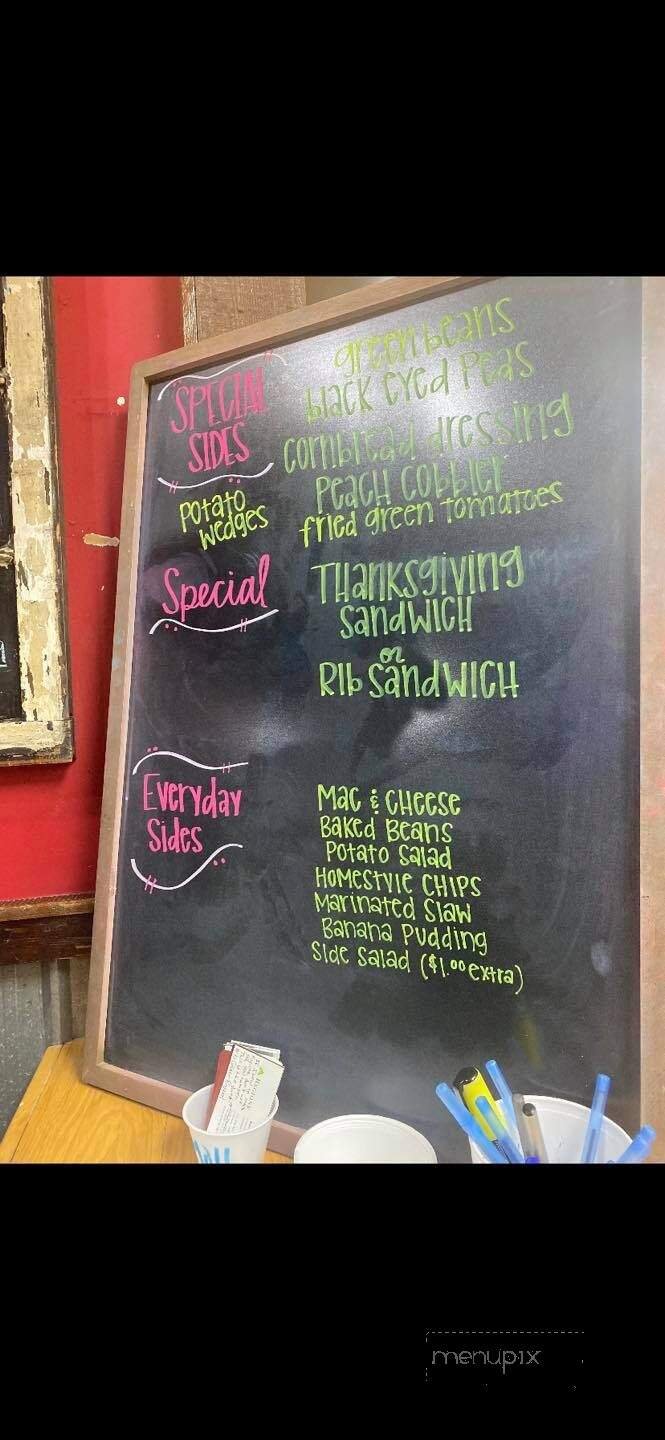 SPECIAL
SIDES
Potato
wedges
green beans
black eyed peas
cornbread dressing
Peach cobbler
fried green tomatoes
Special
Thanksgiving
Sandwich
or
Rib Sandwich
Everyday
Sides
Mac & Cheese
Baked Beans
Potato Salad
Homestyle Chips
Marinated Slaw
Banana Pudding
Side Salad ($1.00 extra)
menupix